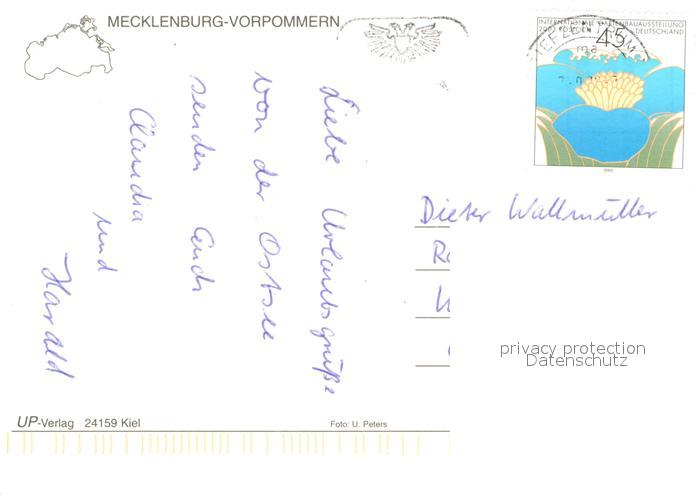 MECKLENBURG-VORPOMMERN
Liebe Urlaubsgrüße
von der Ostsee
senden Euch
Claudia
und
Harald
INTERNATIONALE GARTENBAUAUSSTELLUNG
2003 ROSTOCK DEUTSCHLAND
45
Dieter Wallmüller
privacy protection
Datenschutz
UP-Verlag 24159 Kiel
Foto: U. Peters